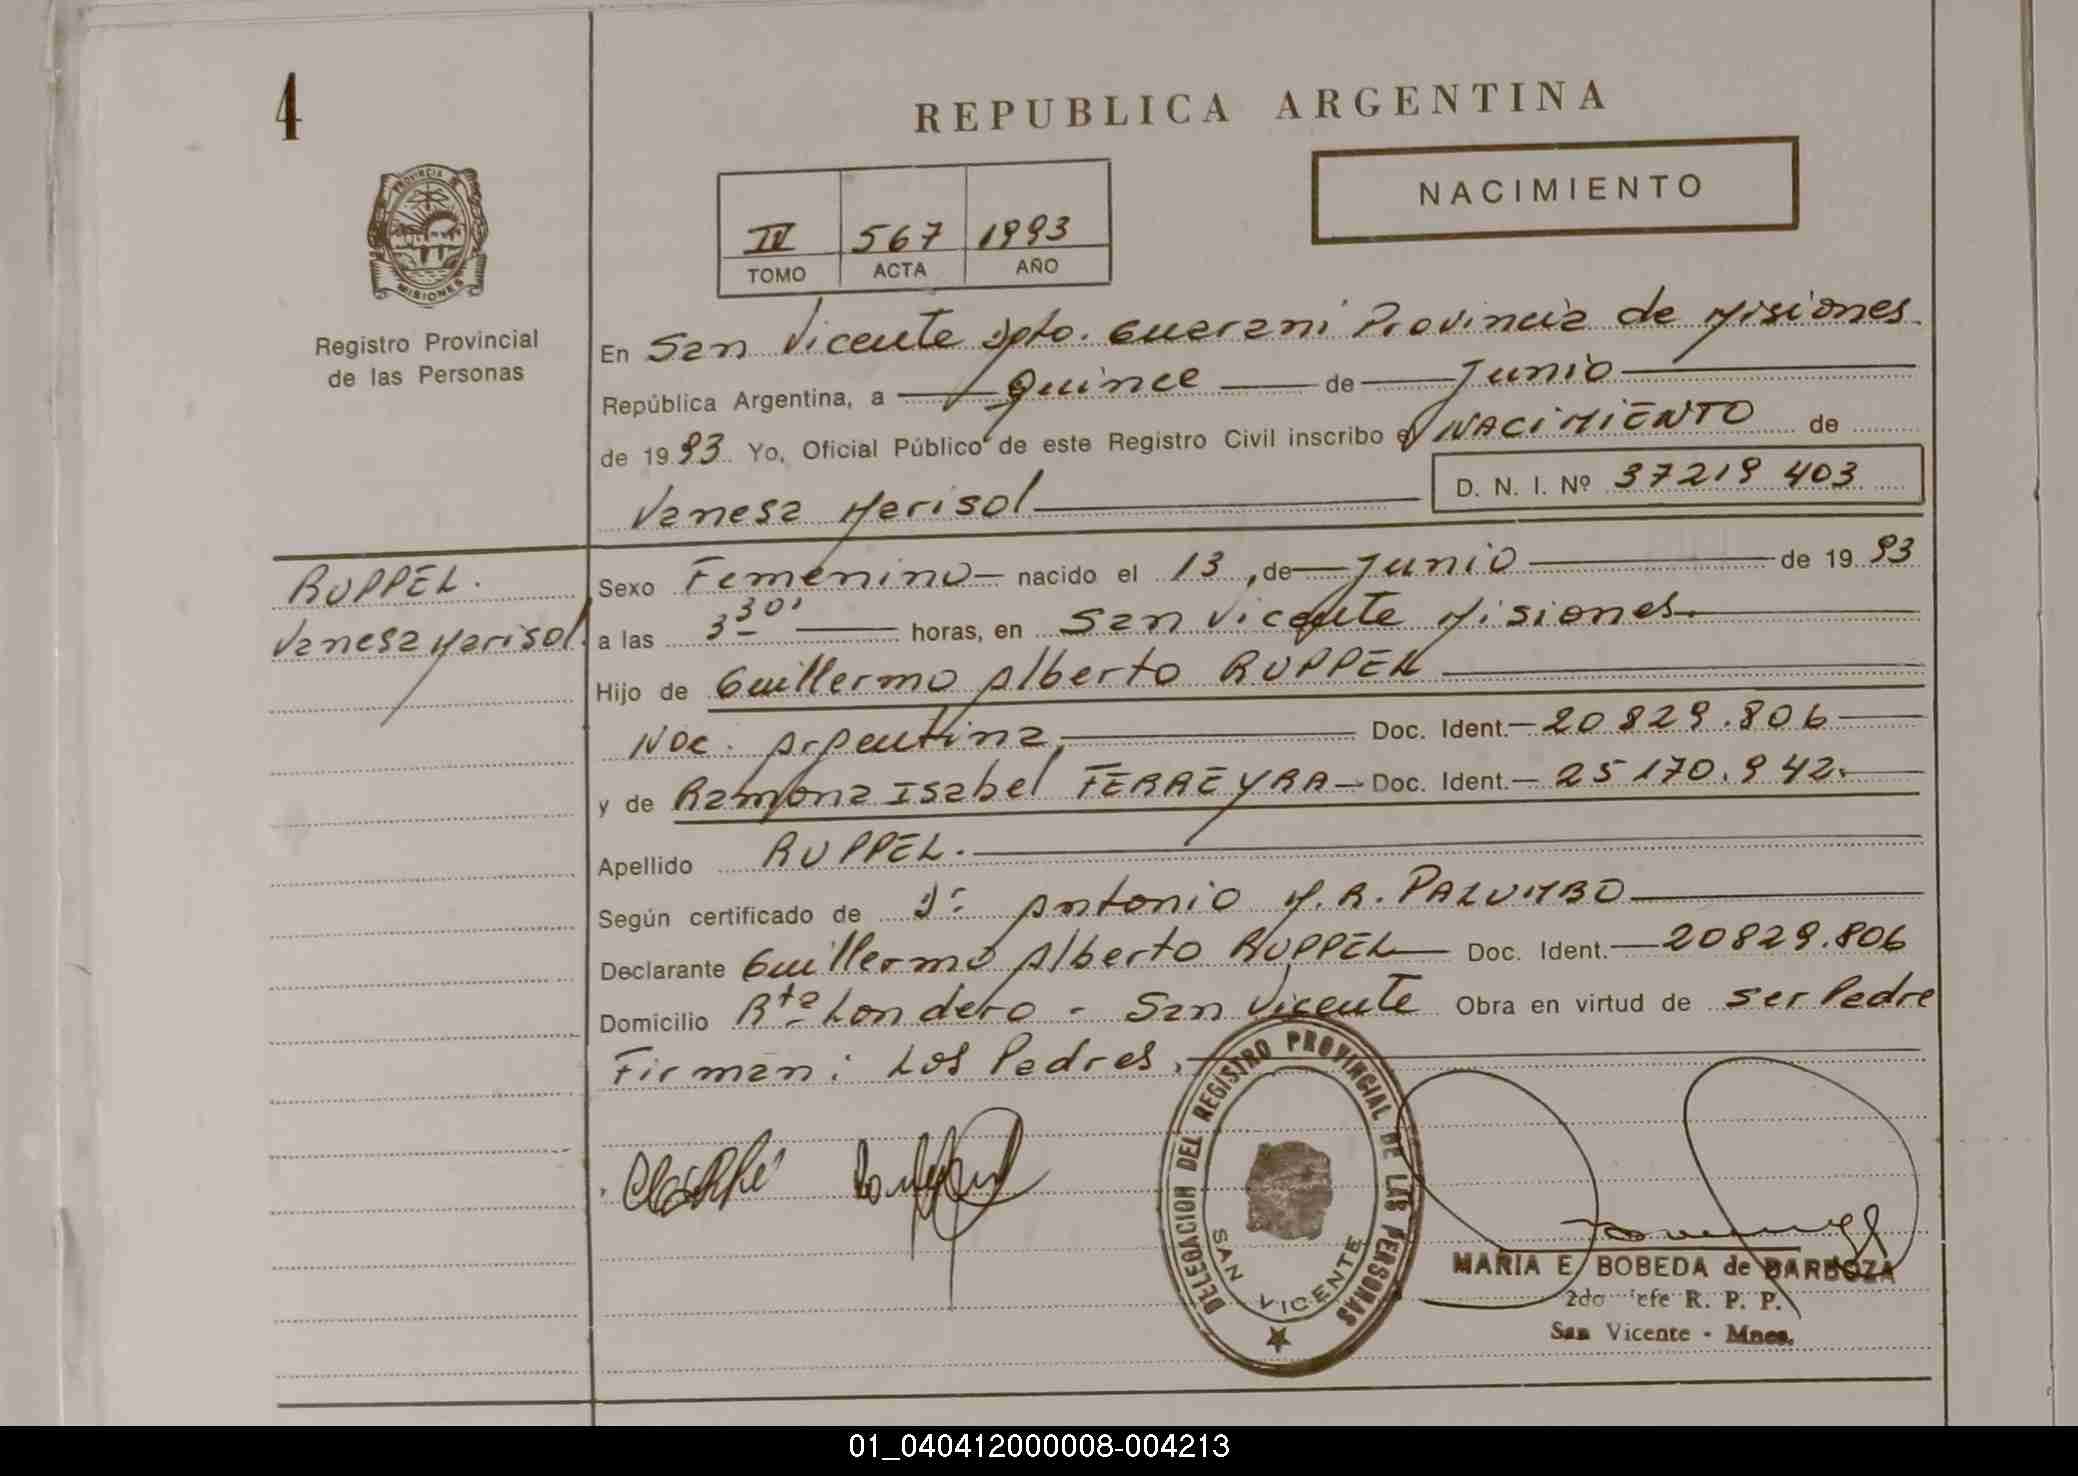 4
REPUBLICA ARGENTINA
NACIMIENTO
PROVINCIA
MISIONES
Registro Provincial
de las Personas
IV 567 1993
TOMO ACTA AÑO
En San Vicente Dpto. Guarani Provincia de Misiones.
República Argentina, a Quince de Junio
de 1993. Yo, Oficial Público de este Registro Civil inscribo el NACIMIENTO de
D. N. I. Nº 37219 403
Vanesa Marisol
RUPPEL.
Vanesa Marisol.
Sexo Femenino nacido el 13, de Junio de 1993
a las 3 30' horas, en San Vicente Misiones.
Hijo de Guillermo Alberto RUPPEL
Nac. Argentina, Doc. Ident. 20829.806
y de Ramona Isabel FERREYRA Doc. Ident. 25170.942.
Apellido RUPPEL.
Según certificado de Dr Antonio M. R. PALUMBO
Declarante Guillermo Alberto RUPPEL Doc. Ident. 20829.806
Domicilio Rta Londero - San Vicente Obra en virtud de ser Padre
Firman: Los Padres.
DELEGACION DEL REGISTRO PROVINCIAL DE LAS PERSONAS
SAN VICENTE
MARIA E. BOBEDA de BARBOZA
2do Jefe R. P. P.
San Vicente - Mnes.
01_040412000008-004213